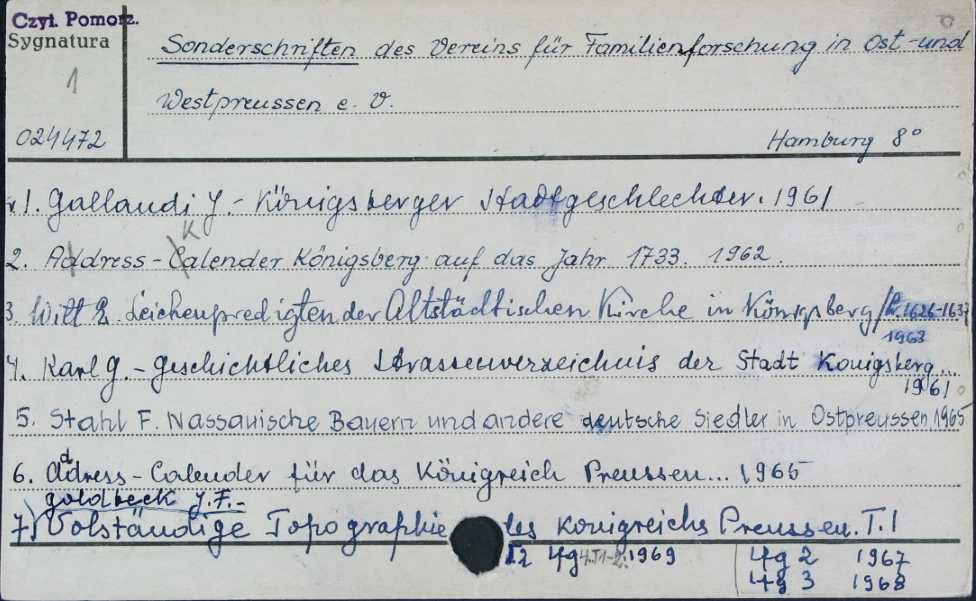 Czyt. Pomorz.
Sygnatura
1
024472
Sonderschriften des Vereins für Familienforschung in Ost- und
Westpreussen e. V.
Hamburg 8°
1. Gallandi J. - Königsberger Stadtgeschlechter. 1961
2. Address - Kalender Königsberg auf das Jahr 1733. 1962.
3. Witt E. Leichenpredigten der Altstädtischen Kirche in Königsberg /Pr. 1626-1637
1963
4. Karl G. - Geschichtliches Strassenverzeichnis der Stadt Konigsberg...
1961
5. Stahl F. Nassauische Bauern und andere deutsche Siedler in Ostpreussen 1965
6. Adress - Calender für das Königreich Preussen... 1965
Goldbeck J. F. -
7) Volständige Topographie des Konigreichs Preussen. T. 1
1969
2 1967
3 1968